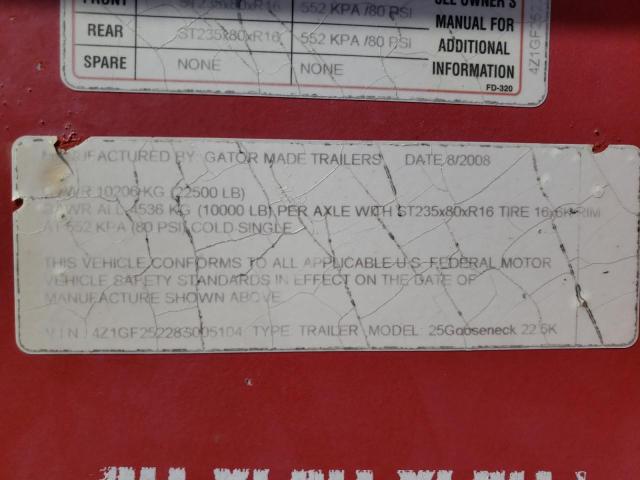 FRONT ST235x80xR16 552 KPA /80 PSI SEE OWNER'S
MANUAL FOR
REAR ST235x80xR16 552 KPA /80 PSI ADDITIONAL
SPARE NONE NONE INFORMATION
FD-320
4Z1GF252
MANUFACTURED BY: GATOR MADE TRAILERS DATE 8/2008
GVWR 10206 KG (22500 LB)
GAWR ALL 4536 KG (10000 LB) PER AXLE WITH ST235x80xR16 TIRE 16x6K RIM
AT 552 KPA (80 PSI) COLD SINGLE
THIS VEHICLE CONFORMS TO ALL APPLICABLE U.S. FEDERAL MOTOR
VEHICLE SAFETY STANDARDS IN EFFECT ON THE DATE OF
MANUFACTURE SHOWN ABOVE
V.I.N. 4Z1GF25228S005104 TYPE TRAILER MODEL: 25Gooseneck 22.5K